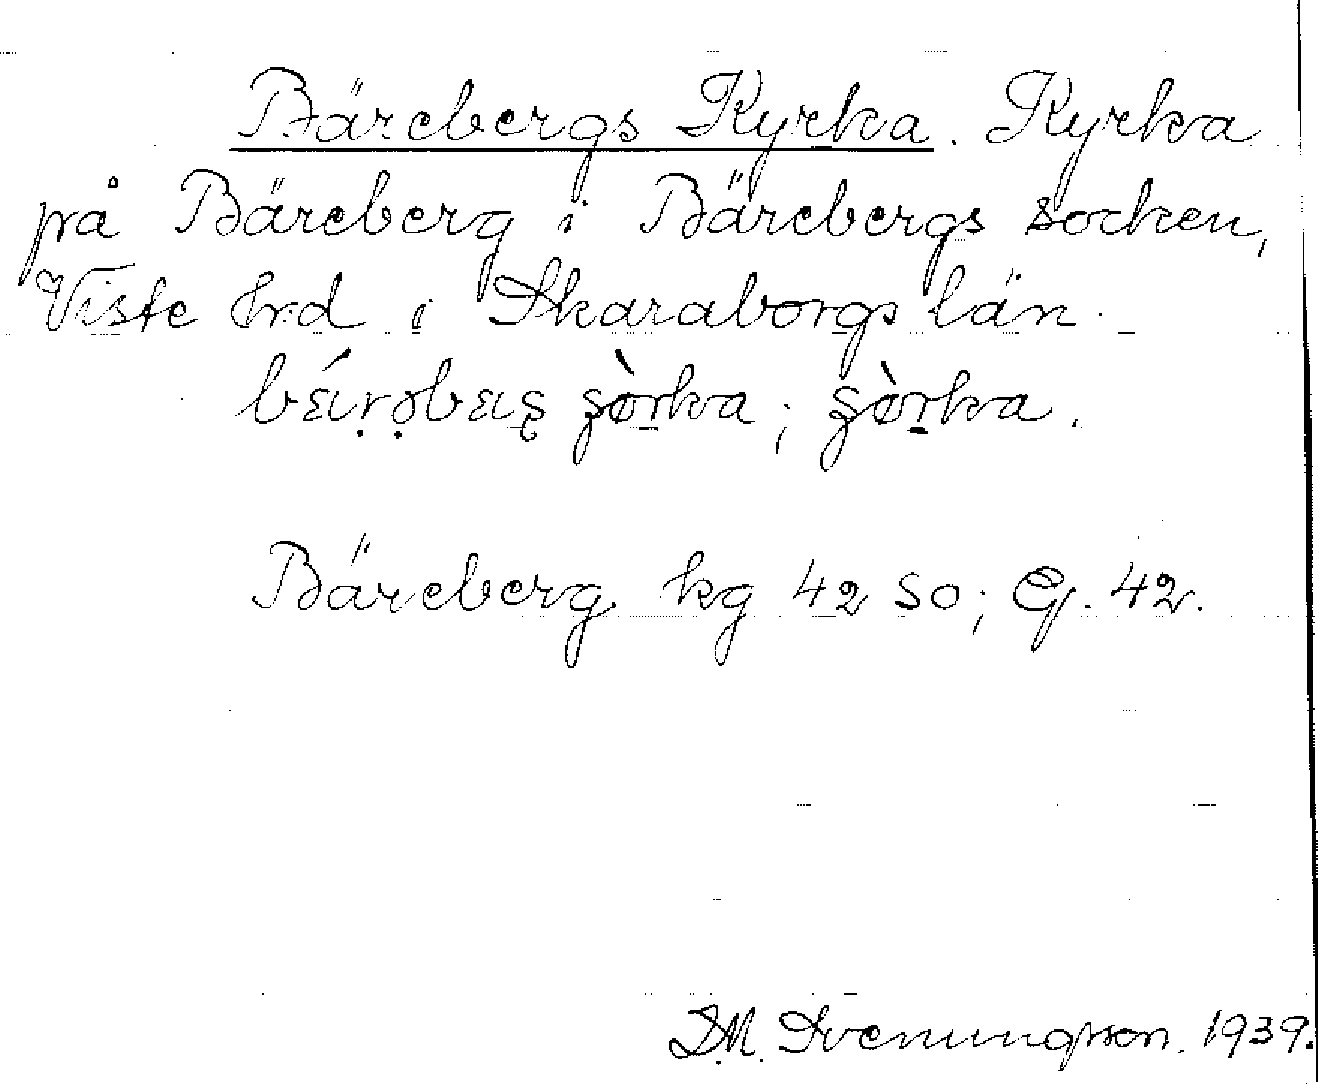 Bärebergs Kyrka. Kyrka
på Bäreberg i Bärebergs socken,
Viste hrd i Skaraborgs län.
Bäreberg kg 42 SO; G. 42.
D.M. Svenungsson. 1939.